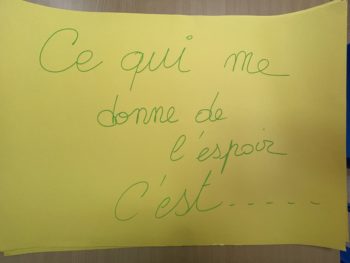 Ce qui me
donne de
l'espoir
C'est.....